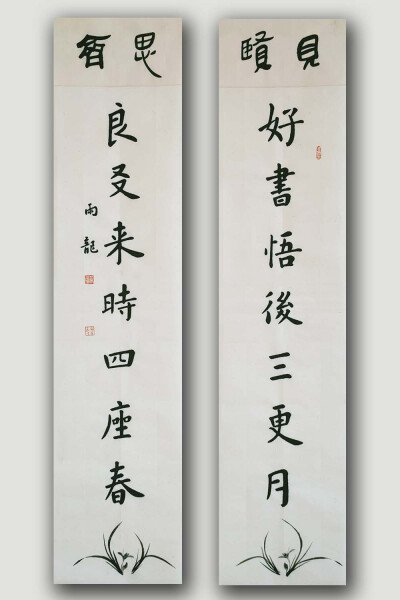 見賢
好書悟後三更月
思齊
良友来時四座春
雨龍